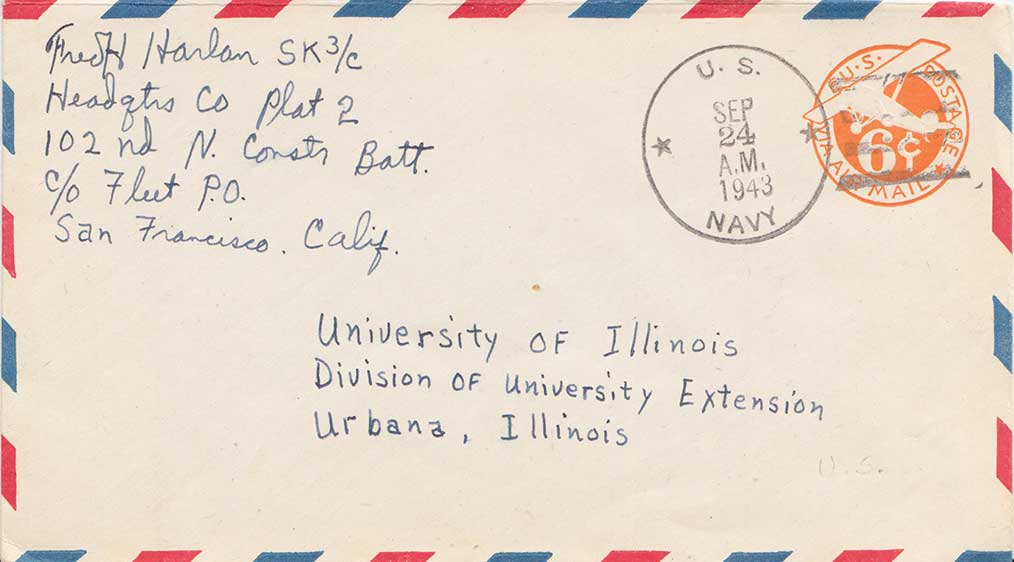 Fred H Harlan SK 3/c
Headqtrs Co Plat 2
102 nd N. Constr Batt.
c/o Fleet P.O.
San Francisco. Calif.
U. S.
SEP
24
A.M.
1943
NAVY
U.S. POSTAGE
6¢
VIA AIR MAIL
University OF Illinois
Division OF University Extension
Urbana, Illinois
U.S.